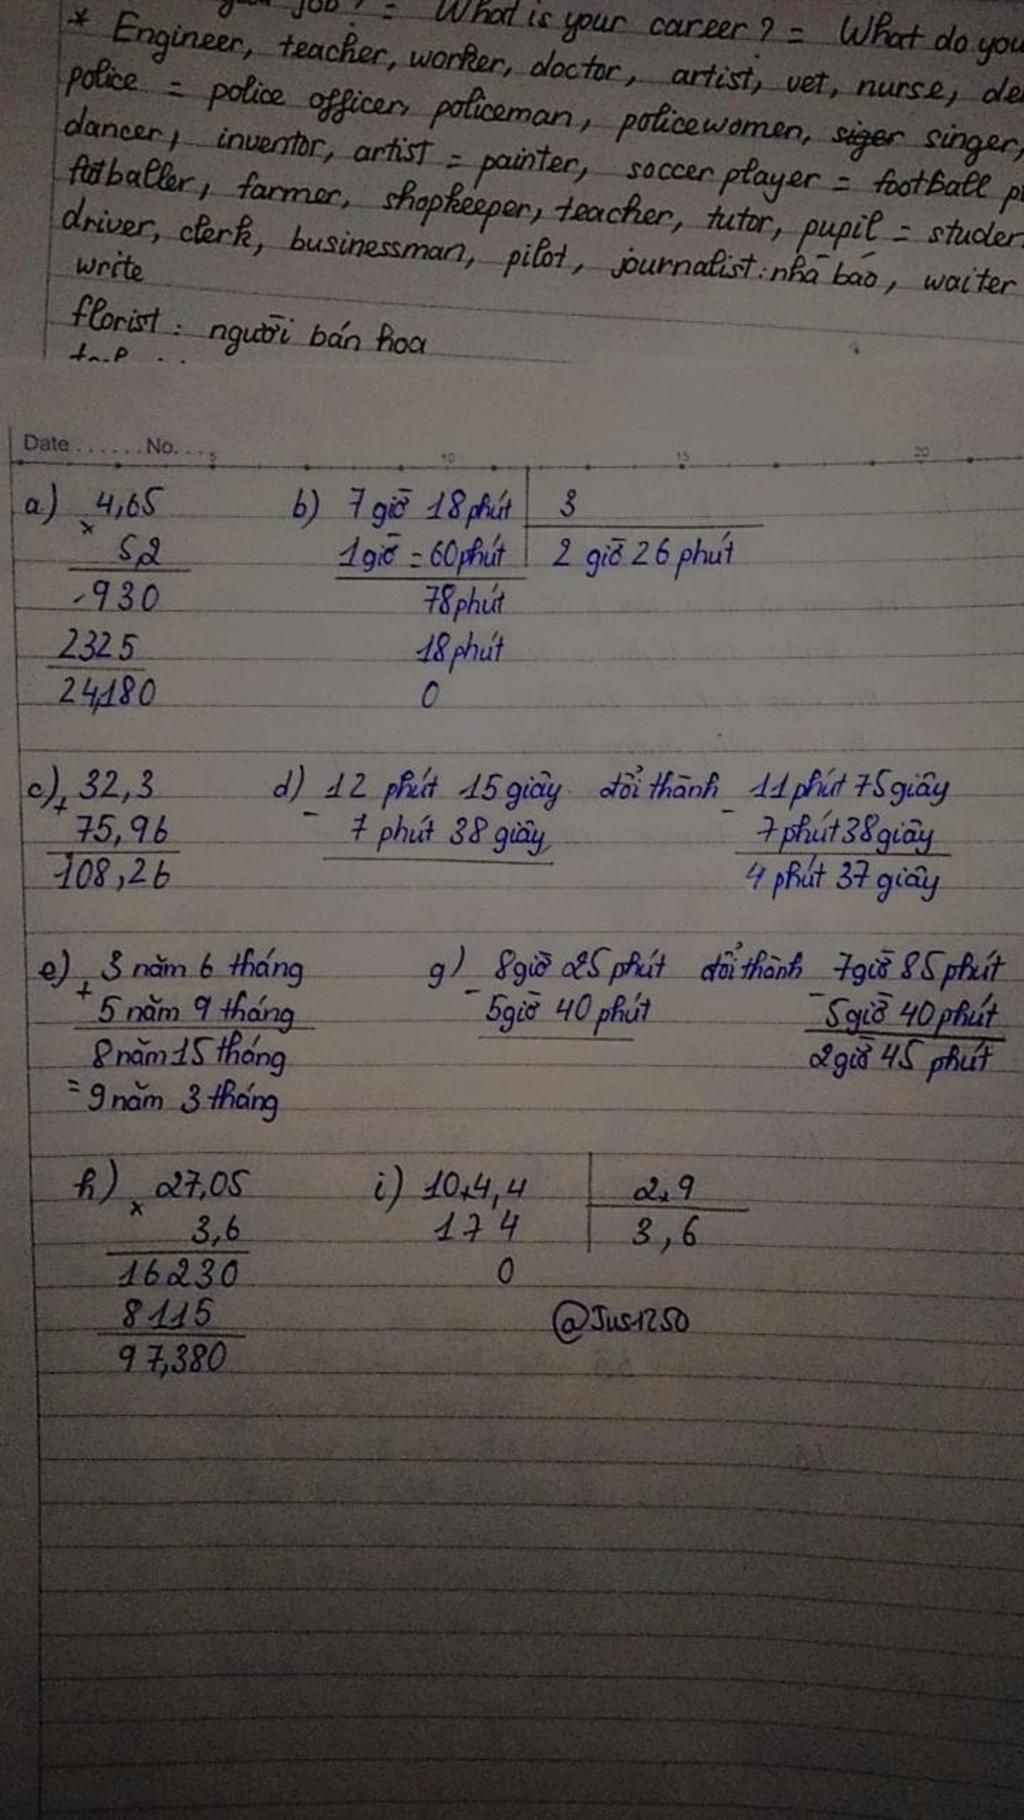 job ? = What is your career ? = What do you
* Engineer, teacher, worker, doctor, artist, vet, nurse,
police = police officer, policeman, policewomen, siger singer,
dancer, inventor, artist = painter, soccer player = football
footballer, farmer, shopkeeper, teacher, tutor, pupil =
driver, clerk, businessman, pilot, journalist: nhà báo, waiter
write
florist : người bán hoa
Date ...... No....
5 10 15 20
a) 4,65 b) 7 giờ 18 phút 3
x 5,2 1 giờ = 60 phút 2 giờ 26 phút
930 78 phút
2325 18 phút
24,180 0
c) 32,3 d) 12 phút 15 giây đổi thành 11 phút 75 giây
+ 75,96 - 7 phút 38 giây - 7 phút 38 giây
108,26 4 phút 37 giây
e) 3 năm 6 tháng g) 8 giờ 25 phút đổi thành 7 giờ 85 phút
+ 5 năm 9 tháng - 5 giờ 40 phút - 5 giờ 40 phút
8 năm 15 tháng 2 giờ 45 phút
= 9 năm 3 tháng
h) 27,05 i) 10,4,4 2,9
x 3,6 174 3,6
16230 0
8115 @Jus1250
97,380